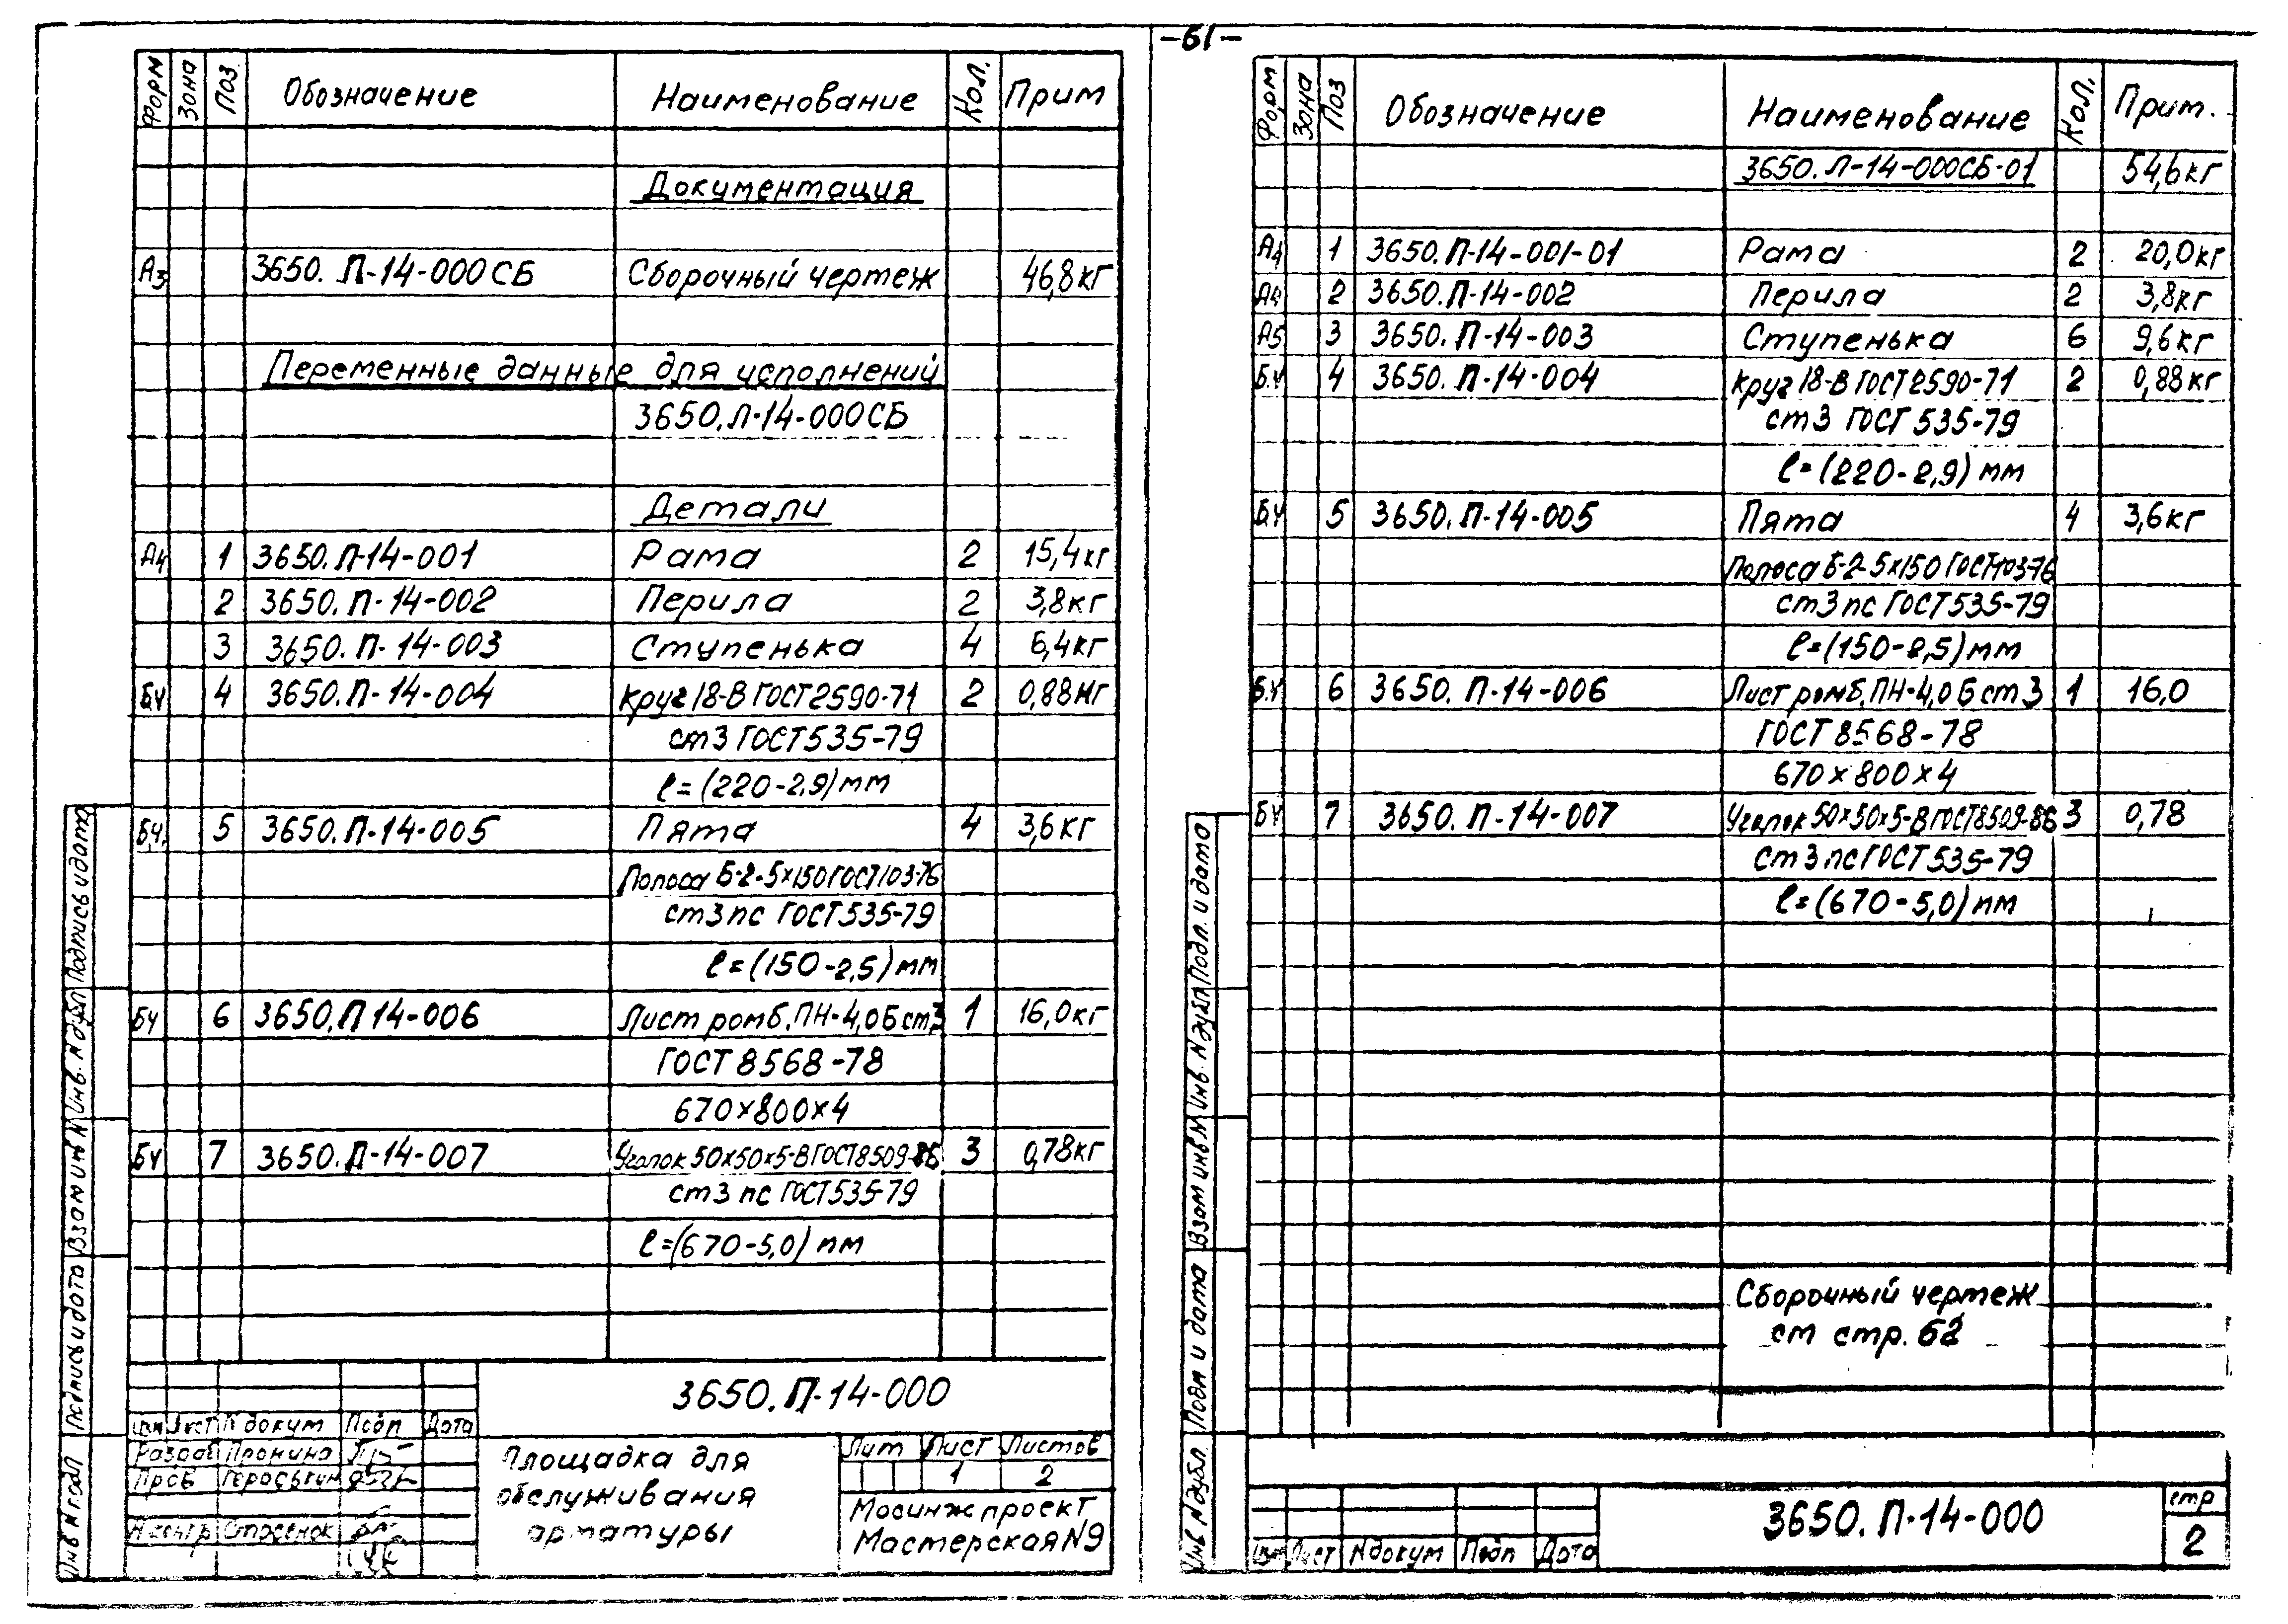 -61-
Форм Зона Поз Обозначение Наименование Кол. Прим
Документация
А3 3650. П-14-000СБ Сборочный чертеж 46,8кг
Переменные данные для исполнений
3650.П-14-000СБ
Детали
А4 1 3650.П-14-001 Рама 2 15,4кг
2 3650.П-14-002 Перила 2 3,8кг
3 3650.П-14-003 Ступенька 4 6,4кг
БЧ 4 3650.П-14-004 Круг 18-В ГОСТ 2590-71 2 0,88кг
ст3 ГОСТ 535-79
ℓ=(220-2,9)мм
БЧ. 5 3650.П-14-005 Пята 4 3,6кг
Полоса Б-2-5х150 ГОСТ103-76
ст3пс ГОСТ535-79
ℓ=(150-2,5)мм
БЧ 6 3650.П14-006 Лист ромб.ПН-4,0Б ст3 1 16,0кг
ГОСТ 8568-78
670х800х4
БЧ 7 3650.П-14-007 Уголок 50х50х5-В ГОСТ8509-86 3 0,78кг
ст3 пс ГОСТ535-79
ℓ=(670-5,0)мм
3650.П-14-000
Изм Лист N докум Подп Дата
Разраб Пронина
Пров
Н.контр
Площадка для
обслуживания
арматуры
Лит Лист Листов
1 2
Мосинжпроект
Мастерская N9
Инв N подл Подпись и дата Взам инв N Инв. N дубл Подпись и дата
Форм Зона Поз Обозначение Наименование Кол. Прим.
3650.П-14-000СБ-01 54,6кг
А4 1 3650.П-14-001-01 Рама 2 20,0кг
А4 2 3650.П-14-002 Перила 2 3,8кг
А5 3 3650.П-14-003 Ступенька 6 9,6кг
Б.Ч 4 3650.П-14-004 Круг 18-В ГОСТ2590-71 2 0,88кг
ст3 ГОСТ 535-79
ℓ=(220-2,9)мм
БЧ 5 3650.П-14-005 Пята 4 3,6кг
Полоса Б-2-5х150 ГОСТ103-76
ст3пс ГОСТ535-79
ℓ=(150-2,5)мм
Б.Ч 6 3650.П-14-006 Лист ромб.ПН-4,0Б ст3 1 16,0
ГОСТ 8568-78
670х800х4
БЧ 7 3650.П-14-007 Уголок 50х50х5-В ГОСТ8509-86 3 0,78
Ст3псГОСТ535-79
ℓ=(670-5,0)мм
Сборочный чертеж
см стр. 62
3650.П-14-000
стр
2
Изм Лист N докум Подп Дата
Инв N дубл. Подп и дата Взам инв N Инв. N дубл Подп. и дата